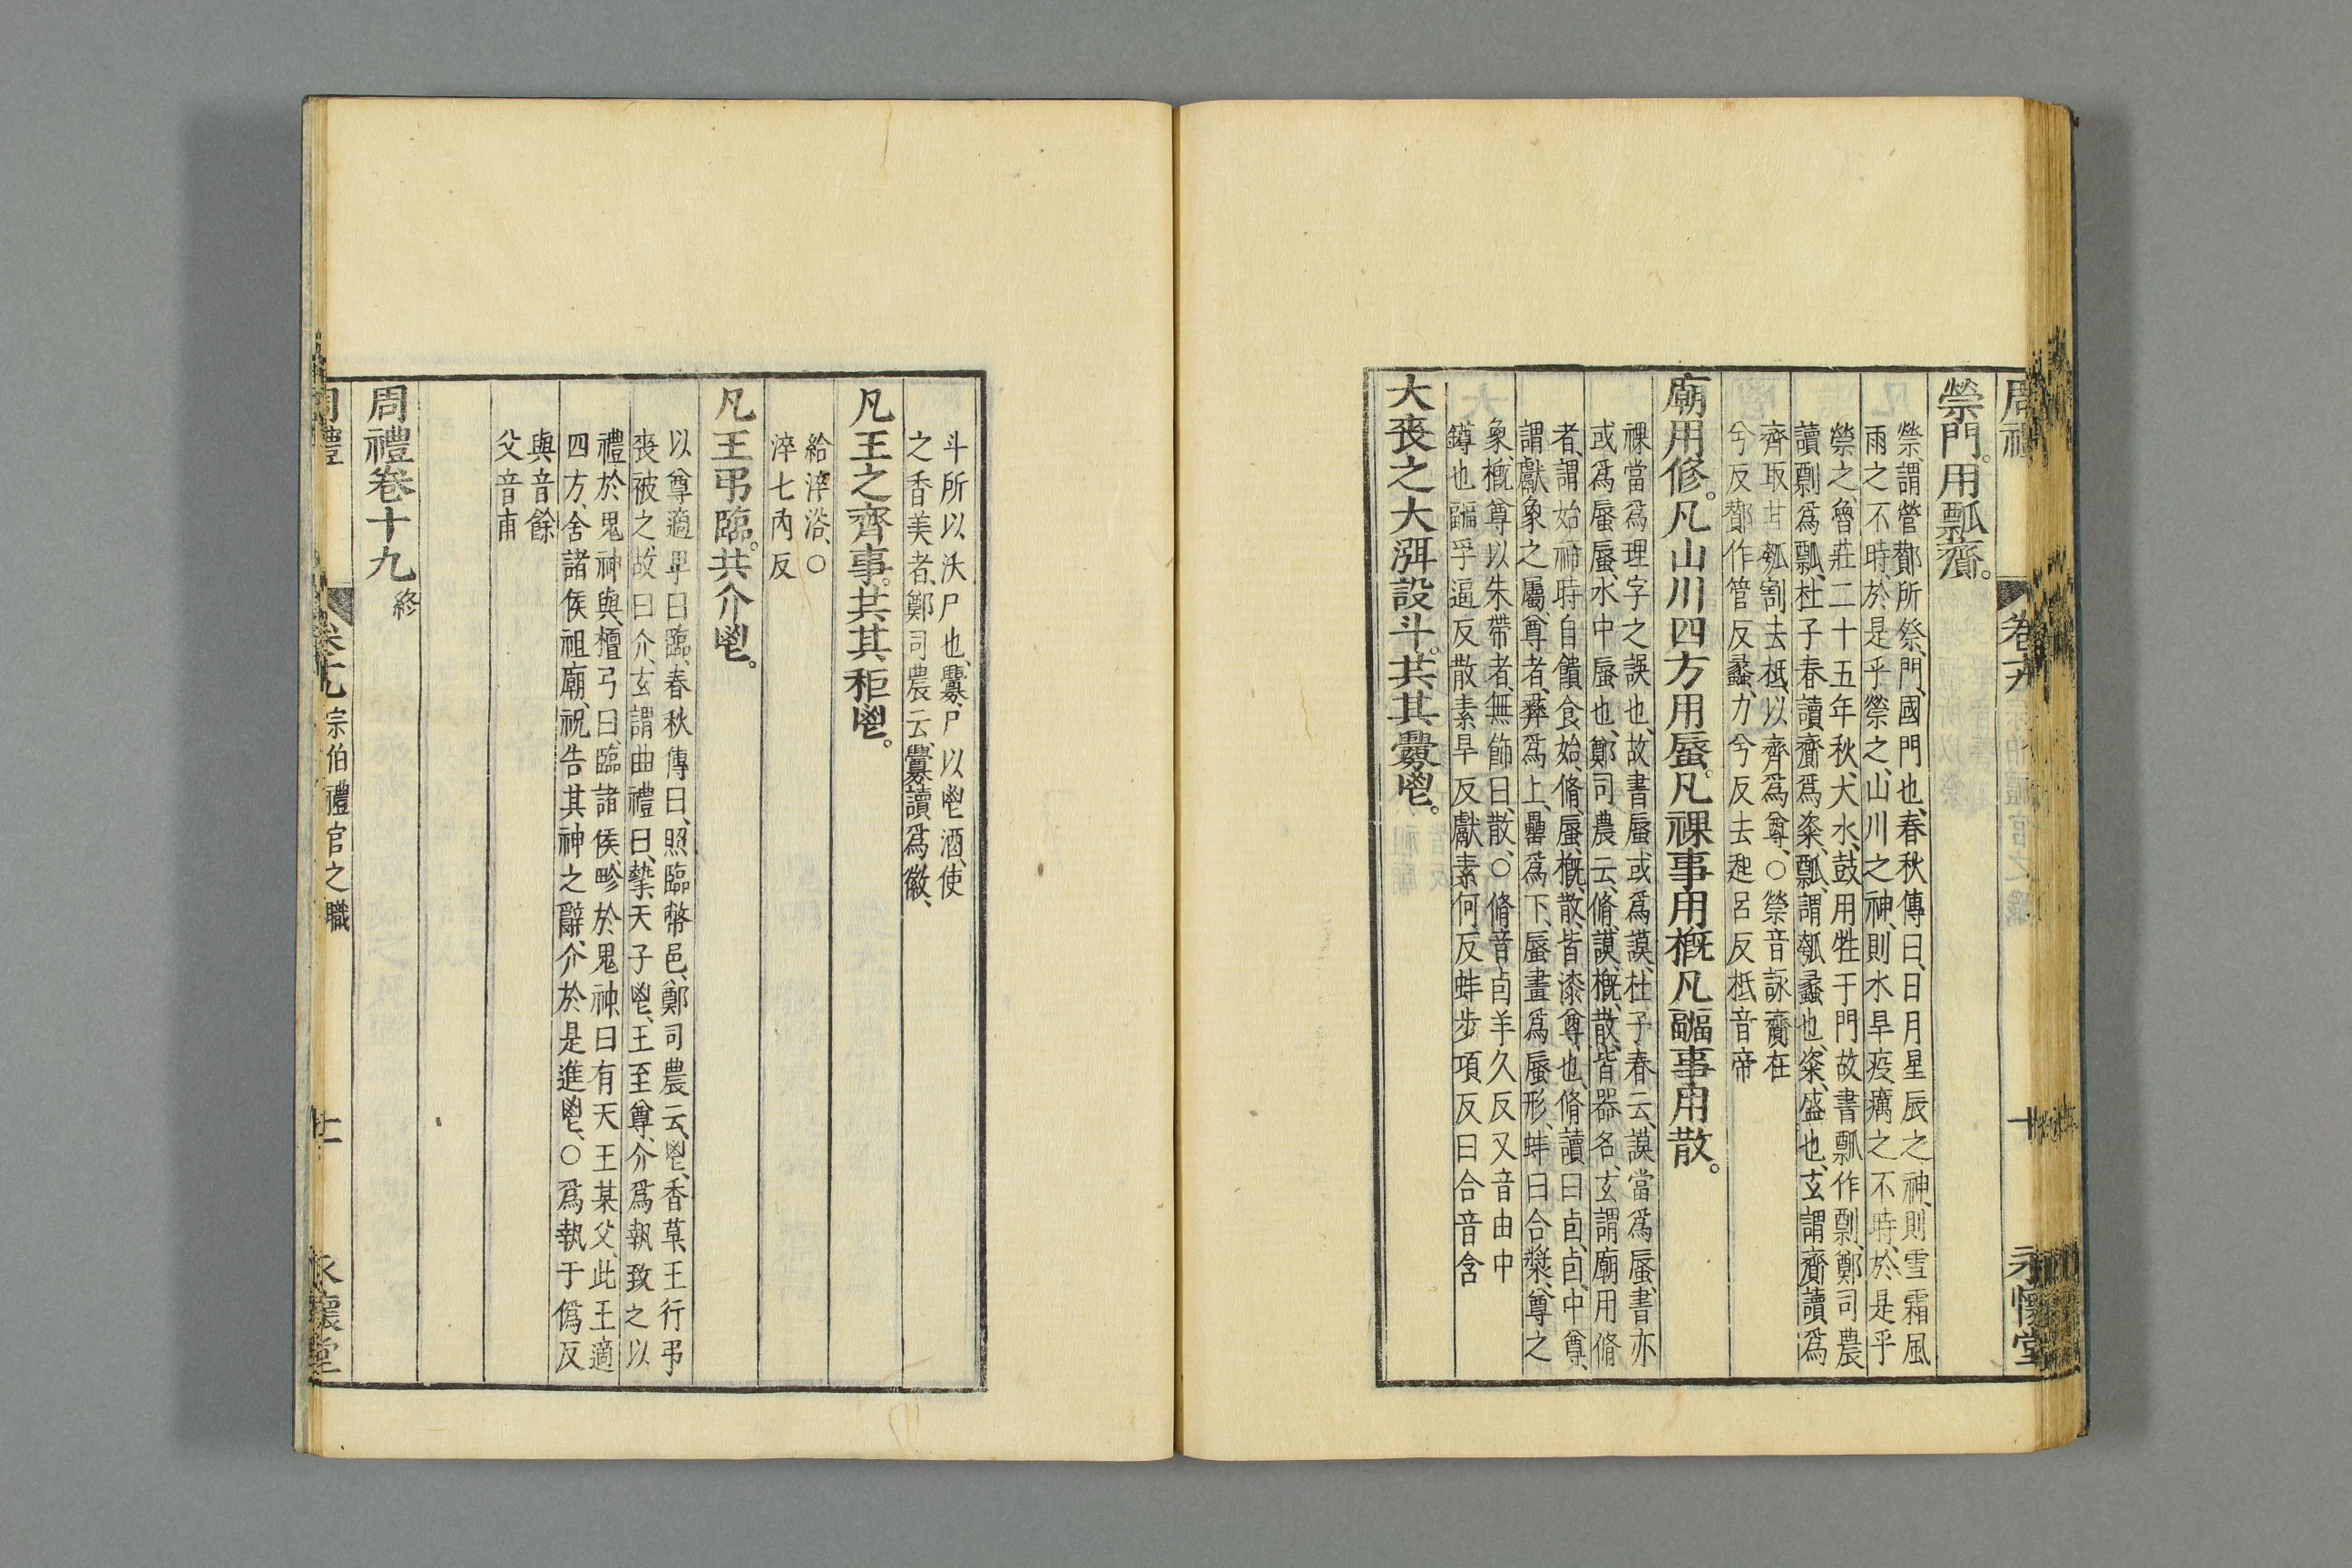 周禮 卷十九 十 永懷堂
禜門。用瓢齎。
禜、謂營酇所祭、門、國門也、春秋傳曰、日月星辰之神、則雪霜風
雨之不時、於是乎禜之、山川之神、則水旱疫癘之不時、於是乎
禜之、魯莊二十五年秋、大水、鼓用牲于門、故書瓢作剽、鄭司農
讀剽爲瓢、杜子春讀齎爲粢、瓢、謂瓠蠡也、粢、盛也、玄謂齎讀爲
齊、取甘瓠割去柢、以齊爲尊、○禜音詠齎在
兮反酇作管反蠡力兮反去起呂反柢音帝
廟用修。凡山川四方用蜃。凡祼事用概。凡疈事用散。
祼當爲埋字之誤也、故書蜃或爲謨、杜子春云、謨當爲蜃、書亦
或爲蜃、蜃、水中蜃也、鄭司農云、脩、謨、概、散、皆器名、玄謂廟用脩
者、謂始禘時自饋食始、脩、蜃、概、散、皆漆尊也、脩讀曰卣、卣、中尊、
謂獻象之屬、尊者、彝爲上、罍爲下、蜃畫爲蜃形、蚌曰合漿、尊之
象、概、尊以朱帶者、無飾曰、散、○脩音卣羊久反又音由中
鐏也疈孚逼反散素旱反獻素何反蚌步項反曰合音含
大喪之大渳設斗。共其釁鬯。
斗所以沃尸也、釁、尸以鬯酒、使
之香美者、鄭司農云、釁讀爲徽、
凡王之齊事。共其秬鬯。
給淬浴、○
淬七內反
凡王弔臨。共介鬯。
以尊適卑曰臨、春秋傳曰、照臨幣邑、鄭司農云、鬯、香草、王行弔
喪被之、故曰介、玄謂曲禮曰、摯、天子鬯、王至尊、介爲執致之以
禮於鬼神與、檀弓曰、臨諸侯、畛於鬼神、曰有天王某父、此王適
四方、舍諸侯祖廟、祝告其神之辭、介於是進鬯、○爲執于僞反
與音餘
父音甫
周禮卷十九 終
周禮 卷十九 宗伯禮官之職 十一 永懷堂